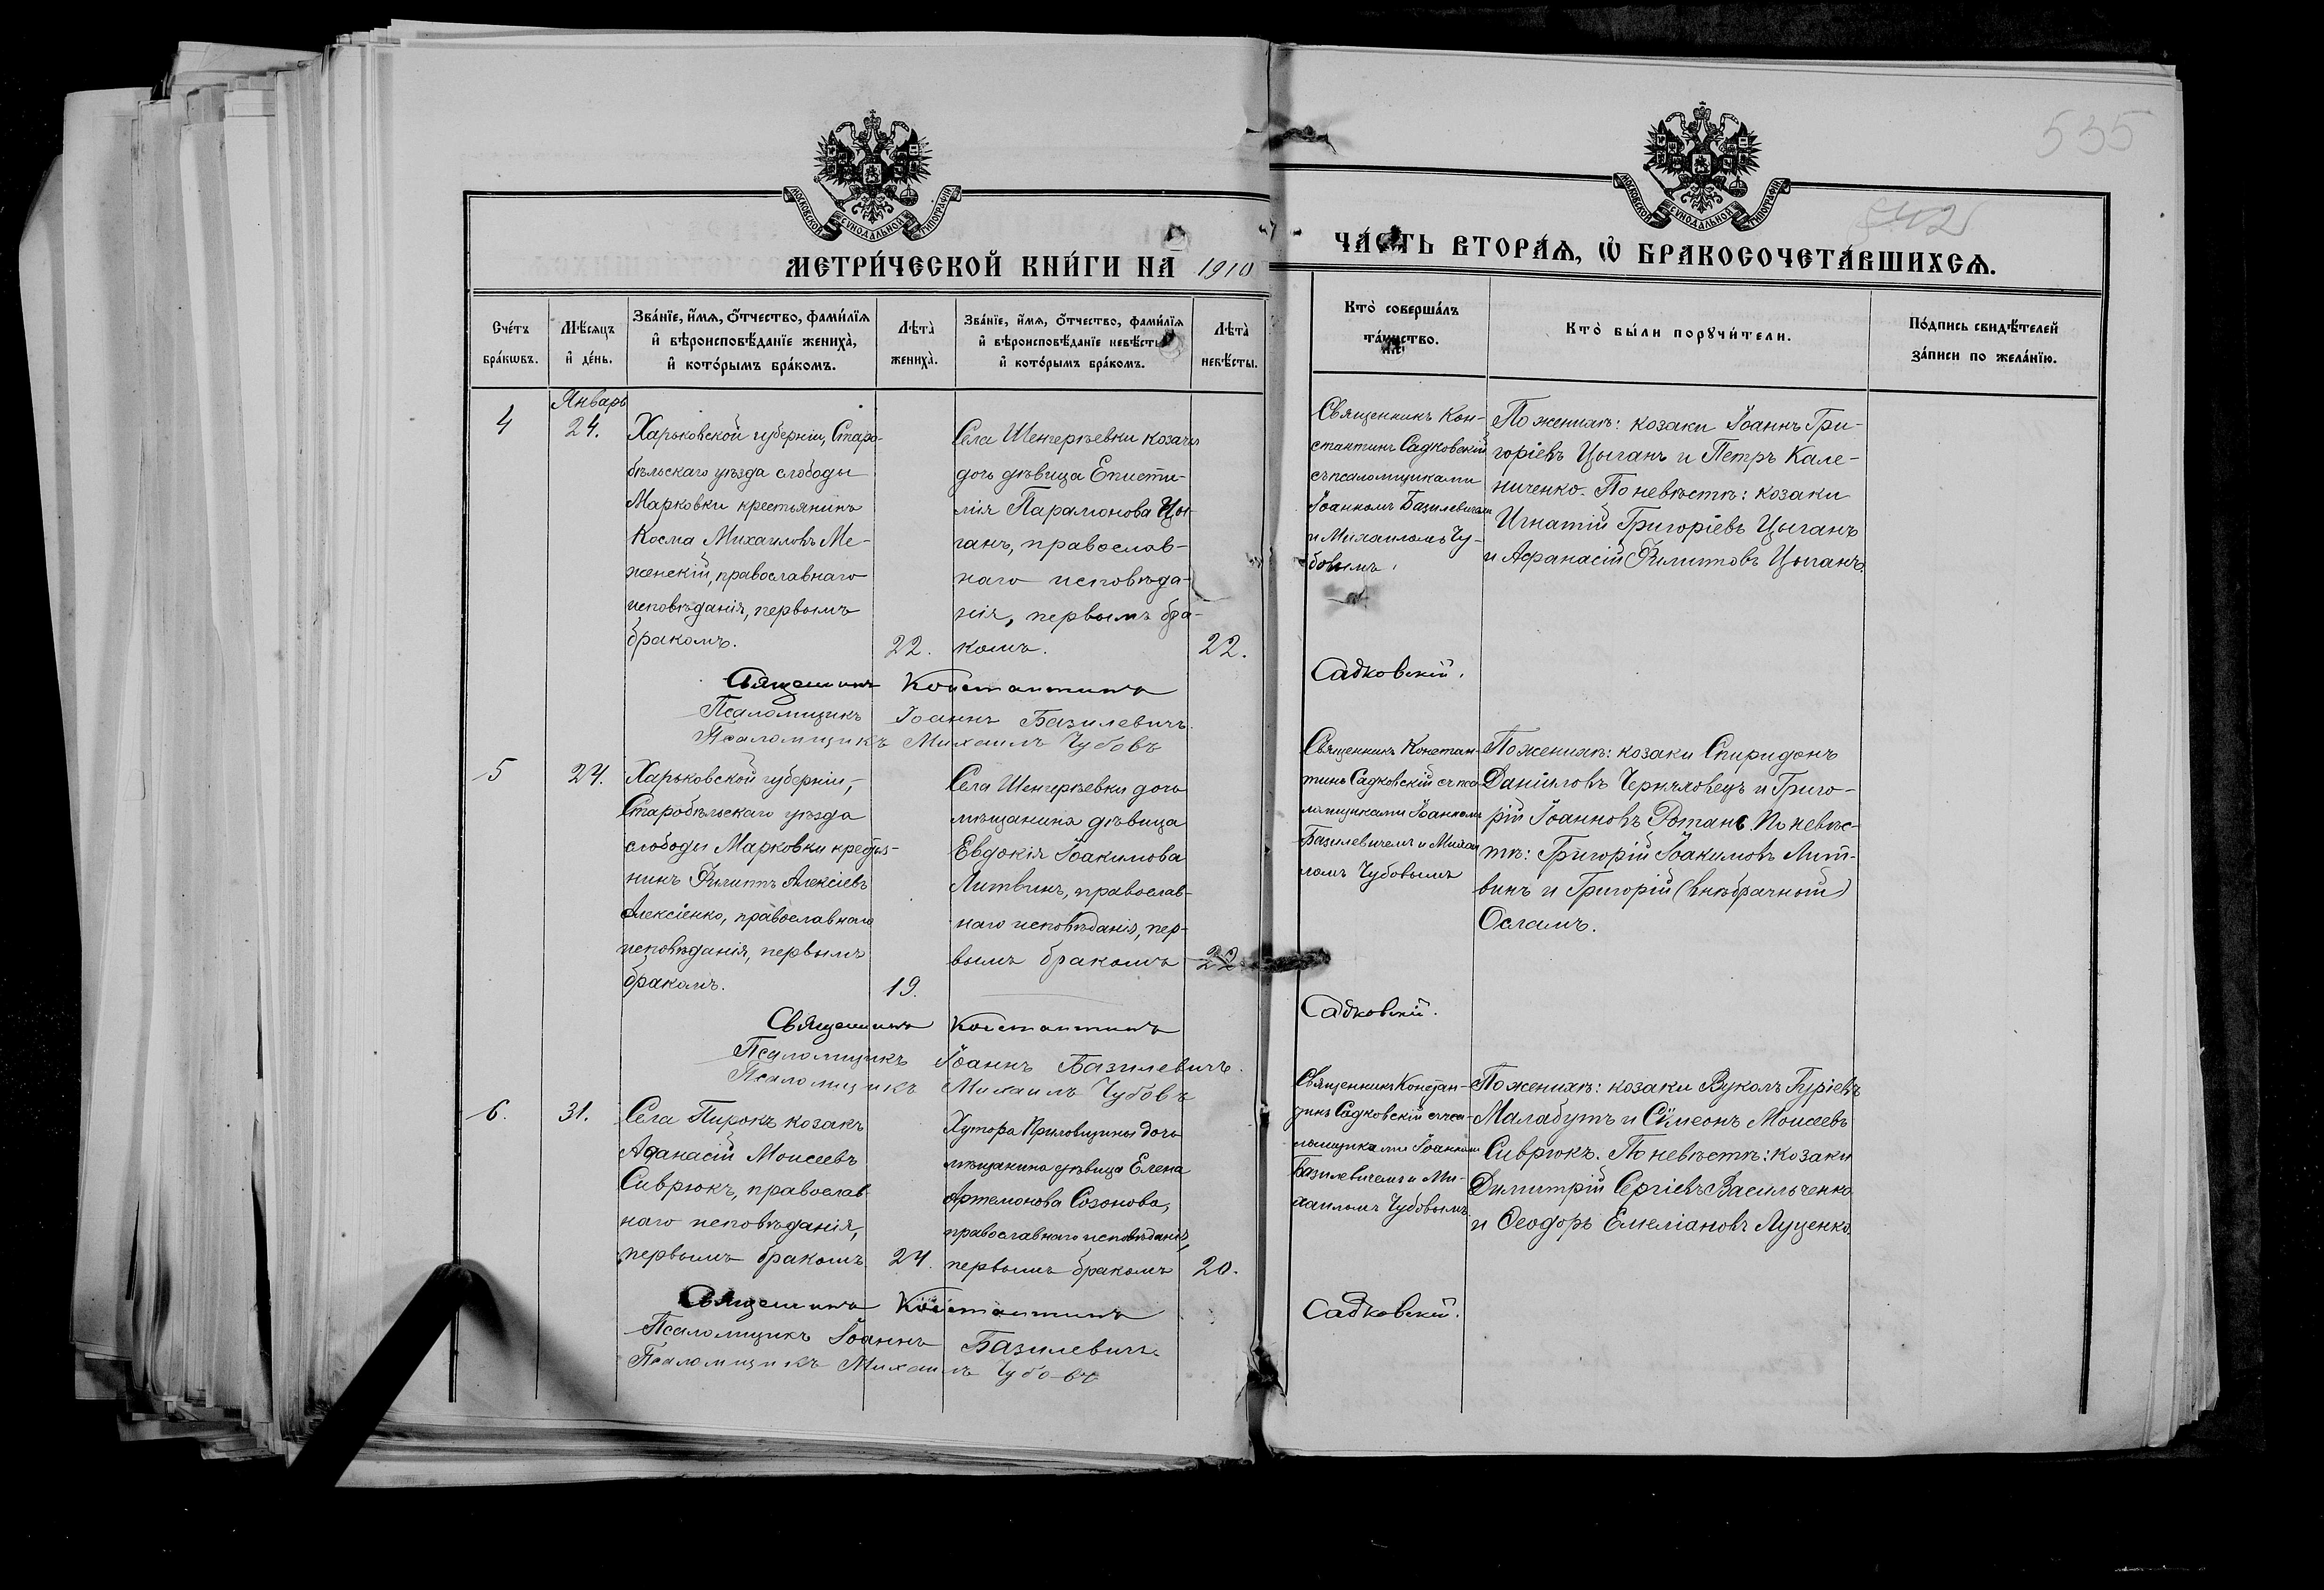 535
542
МОСКОВСКОЙ СѴНОДАЛЬНОЙ ТИПОГРАФІИ
МОСКОВСКОЙ СѴНОДАЛЬНОЙ ТИПОГРАФІИ
МЕТРИ́ЧЕСКОЙ КНИ́ГИ НА 1910
ЧА́СТЬ ВТОРА́Ѧ, Ѽ БРАКОСОЧЕТА́ВШИХСѦ.
Сче́тъ
бра́кѡвъ.
Мѣ́сѧцъ
и҆ де́нь.
Зва́нїе, и҆́мѧ, ѻ҆́тчество, фами́лїѧ
и҆ вѣроисповѣ́данїе жениха̀,
и҆ кото́рымъ бра́комъ.
Лѣта̀
жениха̀.
Зва́нїе, и҆́мѧ, ѻ҆́тчество, фами́лїѧ
и҆ вѣроисповѣ́данїе невѣ́сты
и҆ кото́рымъ бра́комъ.
Лѣта̀
невѣ́сты.
Кто̀ соверша́лъ
та́инство.
Кто̀ бы́ли порꙋчи́тели.
По́дпись свидѣ́телей
за́писи по жела́нїю.
Январь
4
24.
Харьковской губерніи, Старо-
бѣльскаго уѣзда слободы
Марковки крестьянинъ
Косма Михаиловъ Ме-
женскій, православнаго
исповѣданія, первымъ
бракомъ.
22.
Села Шенгерѣевки козачья
дочь дѣвица Еписти-
мія Парамонова Цы-
ганъ, православ-
наго исповѣда-
нія, первымъ бра-
комъ.
22.
Священникъ Кон-
стантинъ Садковскій
съ псаломщиками
Іоанномъ Базилевичемъ
и Михаиломъ Чу-
бовымъ.
По женихѣ: козаки Іоаннъ Гри-
горіевъ Цыганъ и Петръ Кале-
ниченко. По невѣстѣ: козаки
Игнатій Григоріевъ Цыганъ
и Афанасій Филиповъ Цыганъ.
Священникъ Константинъ Садковскій.
Псаломщикъ Іоаннъ Базилевичъ.
Псаломщикъ Михаилъ Чубовъ
5
24.
Харьковской губерніи,
Старобѣльскаго уѣзда
слободы Марковки крестья-
нинъ Филиппъ Алексіевъ
Алексіенко, православнаго
исповѣданія, первымъ
бракомъ.
19.
Села Шенгерѣевки дочь
мѣщанина дѣвица
Евдокія Іоакимова
Литвинъ, православ-
наго исповѣданія, пер-
вымъ бракомъ
22
Священникъ Констан-
тинъ Садковскій съ пса-
ломщиками Іоанномъ
Базилевичемъ и Михаи
ломъ Чубовымъ
По женихѣ: козаки Спиридонъ
Даніиловъ Черняховецъ и Григо-
рій Іоанновъ Ротань По невѣс-
тѣ: Григорій Іоакимовъ Лит-
винъ и Григорій (внѣбрачный)
Осламъ.
Священникъ Константинъ Садковскій.
Псаломщикъ Іоаннъ Базилевичъ.
Псаломщикъ Михаилъ Чубовъ
6.
31.
Села Пирокъ козакъ
Афанасій Моисеевъ
Сиврюкъ, православ-
наго исповѣданія,
первымъ бракомъ
24.
Хутора Криловщины дочь
мѣщанина дѣвица Елена
Артемонова Созонова,
православнаго исповѣданія,
первымъ бракомъ
20.
Священникъ Констан-
тинъ Садковскій съ пса-
ломщиками Іоанномъ
Базилевичемъ и Ми-
хаиломъ Чубовымъ.
По женихѣ: козаки Вуколъ Гуріевъ
Малабутъ и Сѵмеонъ Моисеевъ
Сиврюкъ. По невѣстѣ: козаки
Димитрій Сергіевъ Васильченко
и Феодоръ Емеліановъ Луценко.
Священникъ Константинъ Садковскій.
Псаломщикъ Іоаннъ Базилевичъ.
Псаломщикъ Михаилъ Чубовъ